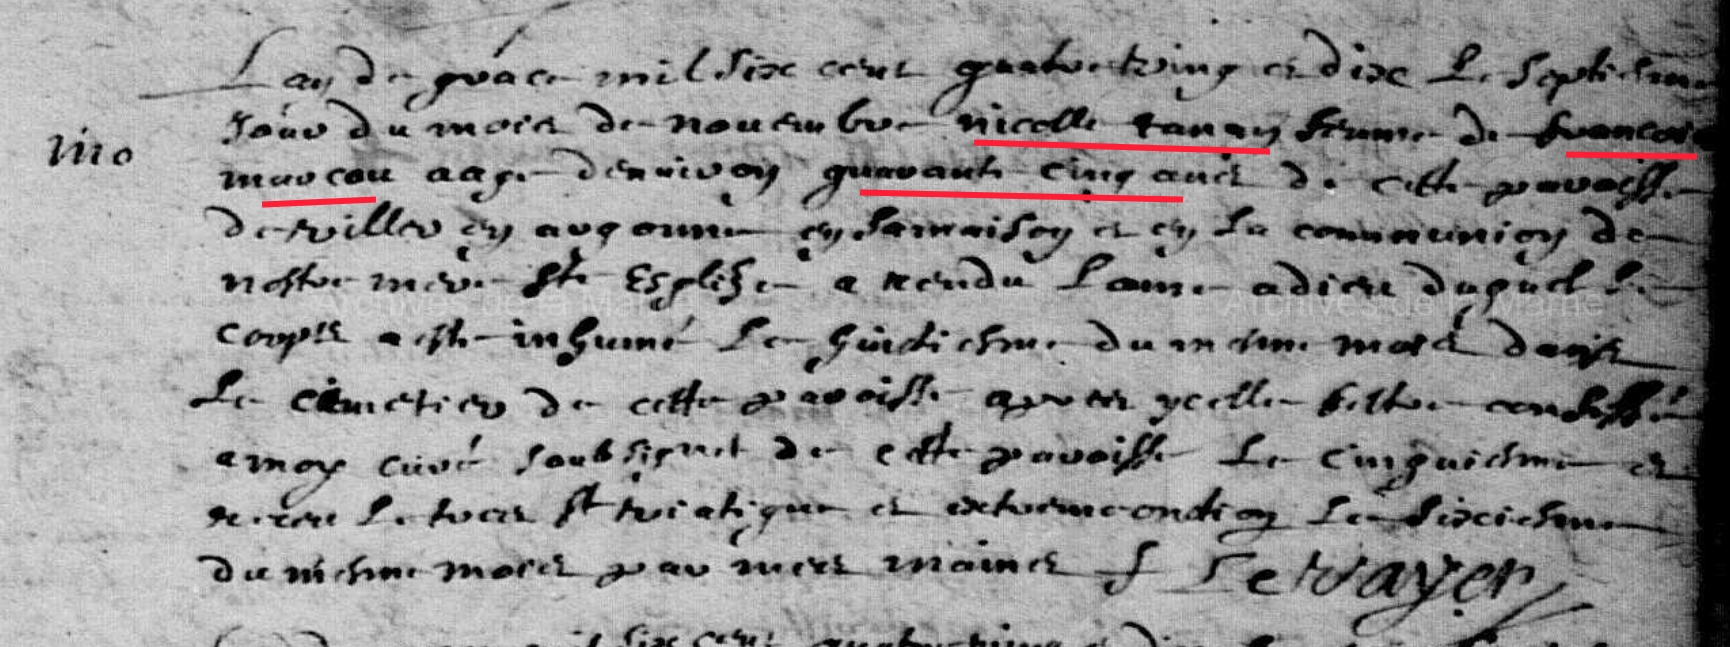 Lan de grace mil six cens quatre ving et dix Le septiesme
Jour du mois de nouembre nicolle tanay femme de francois
marcou aage denuiron quarante cinq ans de cette paroisse
de viller en argonne en sa maison et en La communion de
nostre mere Ste Esglise a rendu Lame a dieu duquel Le
corps a este inhumé Le huictiesme du mesme mois dans
Le cimetier de cette paroisse apres ycelle sestre confessé
a moy curé soubsignet de cette paroisse Le cinquiesme et
receu Le tres St viatique et extreme onction Le sixiesme
du mesme mois par mes mains f LeVayer
Archives de la Marne
Archives de la Marne